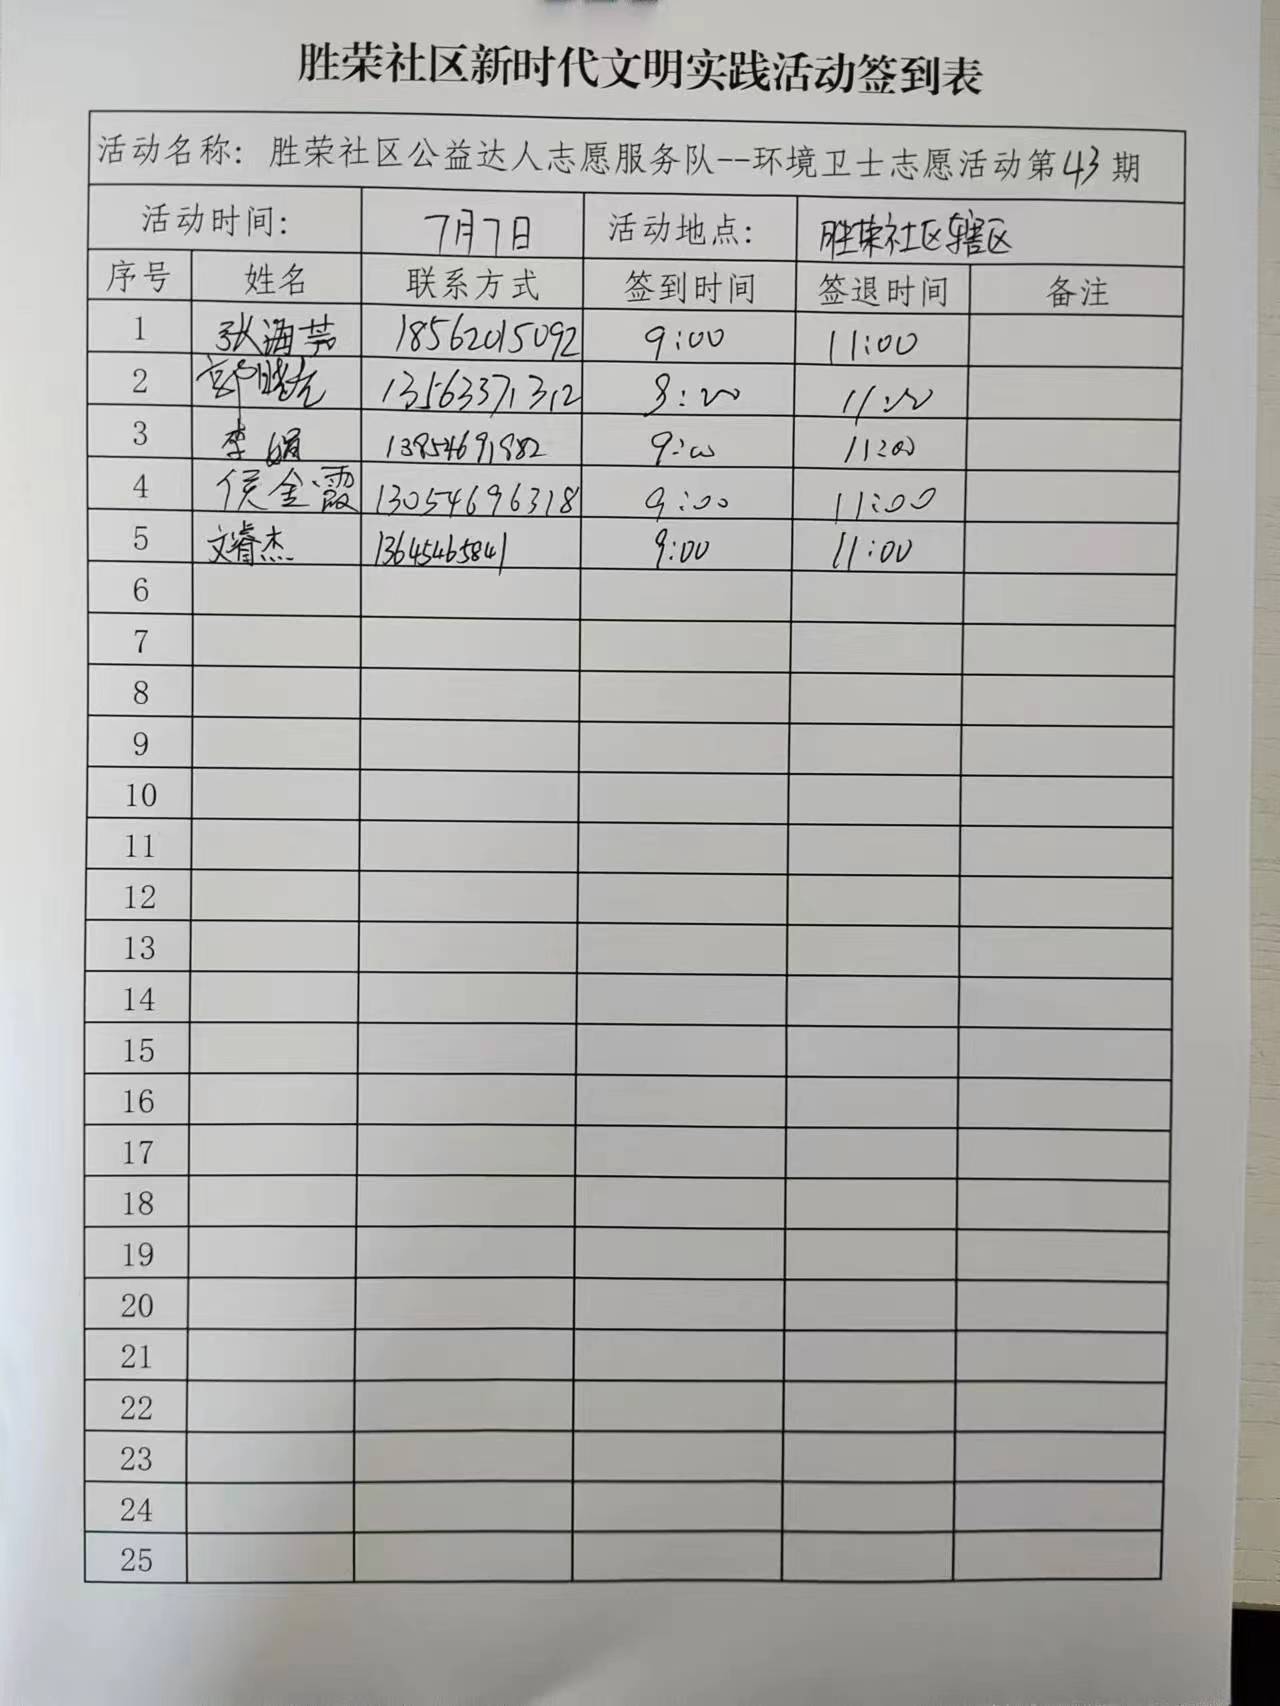 胜荣社区新时代文明实践活动签到表
活动名称：胜荣社区公益达人志愿服务队--环境卫士志愿活动第43期
活动时间： 7月7日 活动地点： 胜荣社区辖区
序号 姓名 联系方式 签到时间 签退时间 备注
1 张海 18562015092 9:00 11:00
2 郭晓 13563371312 11:00
3 李娟 13854691982 9:00 11:00
4 侯金霞 13054696318 9:00 11:00
5 文睿杰 13645465841 9:00 11:00
6
7
8
9
10
11
12
13
14
15
16
17
18
19
20
21
22
23
24
25